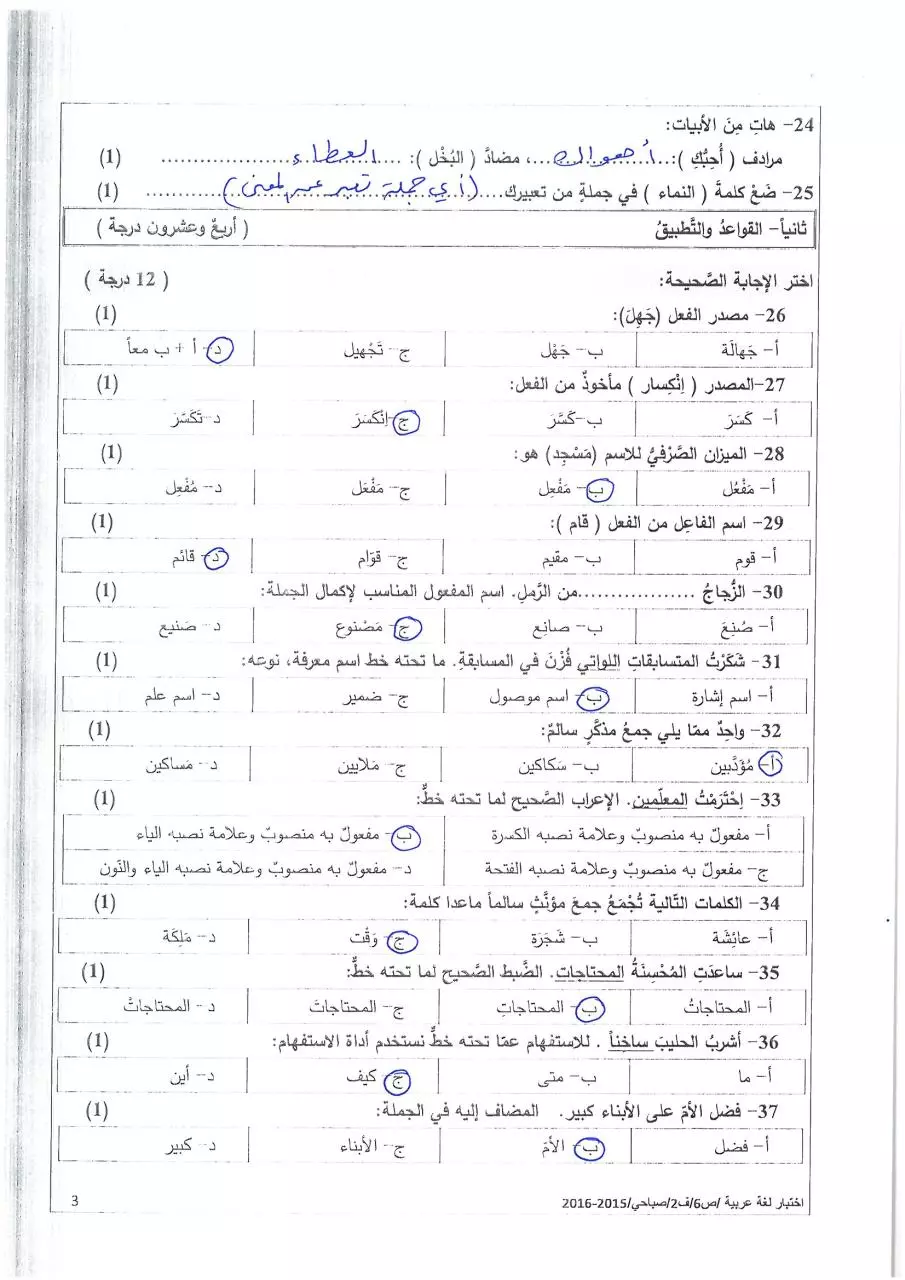 24- هاتِ مِنَ الأبيات:
مرادف ( أُحِبُّكِ ):........ أهواك ......، مضادَّ ( البُخْل ): ........ العطاء ........ (1)
25- ضَعْ كلمةَ ( النماء ) في جملةٍ من تعبيرك.....(أي جملة تعبر عن المعنى)..... (1)
ثانياً- القواعدُ والتَّطبيقُ ( أربعٌ وعشرون درجة )
اختر الإجابة الصَّحيحة: ( 12 درجة )
26- مصدر الفعل (جَهِلَ): (1)
أ- جَهالَة ب- جَهْل ج- تَجْهيل د- أ + ب معاً
27-المصدر ( اِنْكِسار ) مأخوذٌ من الفعل: (1)
أ- كَسَرَ ب-كَسَّرَ ج-اِنْكَسَرَ د-تَكَسَّرَ
28- الميزان الصَّرْفيُّ للاسم (مَسْجِد) هو: (1)
أ- مَفْعُل ب- مَفْعِل ج- مَفْعَل د- مُفْعِل
29- اسم الفاعِل من الفعل ( قام ): (1)
أ- قوم ب- مقيم ج- قوّام د- قائم
30- الزُّجاجُ ..................من الرَّملِ. اسم المفعول المناسب لإكمال الجملة: (1)
أ- صُنِعَ ب- صانِع ج- مَصْنوع د- صَنيع
31- شَكَرْتُ المتسابقاتِ اللواتي فُزْنَ في المسابقةِ. ما تحته خط اسم معرفة، نوعه: (1)
أ- اسم إشارة ب- اسم موصول ج- ضمير د- اسم علم
32- واحِدٌ ممّا يلي جمعُ مذكَّرٍ سالمٌ: (1)
أ- مُؤَدَّبين ب- سَكاكين ج- مَلايين د- مَساكين
33- اِحْتَرَمْتُ المعلّمين. الإعراب الصَّحيح لما تحته خطٌّ: (1)
أ- مفعولٌ به منصوبٌ وعلامة نصبه الكسرة ب- مفعولٌ به منصوبٌ وعلامة نصبه الياء
ج- مفعولٌ به منصوبٌ وعلامة نصبه الفتحة د- مفعولٌ به منصوبٌ وعلامة نصبه الياء والنّون
34- الكلمات التّالية تُجْمَعُ جمعَ مؤنَّثٍ سالماً ماعدا كلمة: (1)
أ- عائِشَة ب- شَجَرَة ج- وَقْت د- مَلِكَة
35- ساعدَتِ المُحْسِنَةُ المحتاجات. الضَّبط الصَّحيح لما تحته خطٌّ: (1)
أ- المحتاجاتُ ب- المحتاجاتِ ج- المحتاجاتَ د- المحتاجاتْ
36- أشربُ الحليبَ ساخِناً . للاستفهام عمّا تحته خطٌّ نستخدم أداة الاستفهام: (1)
أ- ما ب- متى ج- كيف د- أين
37- فضل الأمّ على الأبناء كبير. المضاف إليه في الجملة: (1)
أ- فضل ب- الأمّ ج- الأبناء د- كبير
اختبار لغة عربية /ص6/ف2/صباحي/2015-2016 3